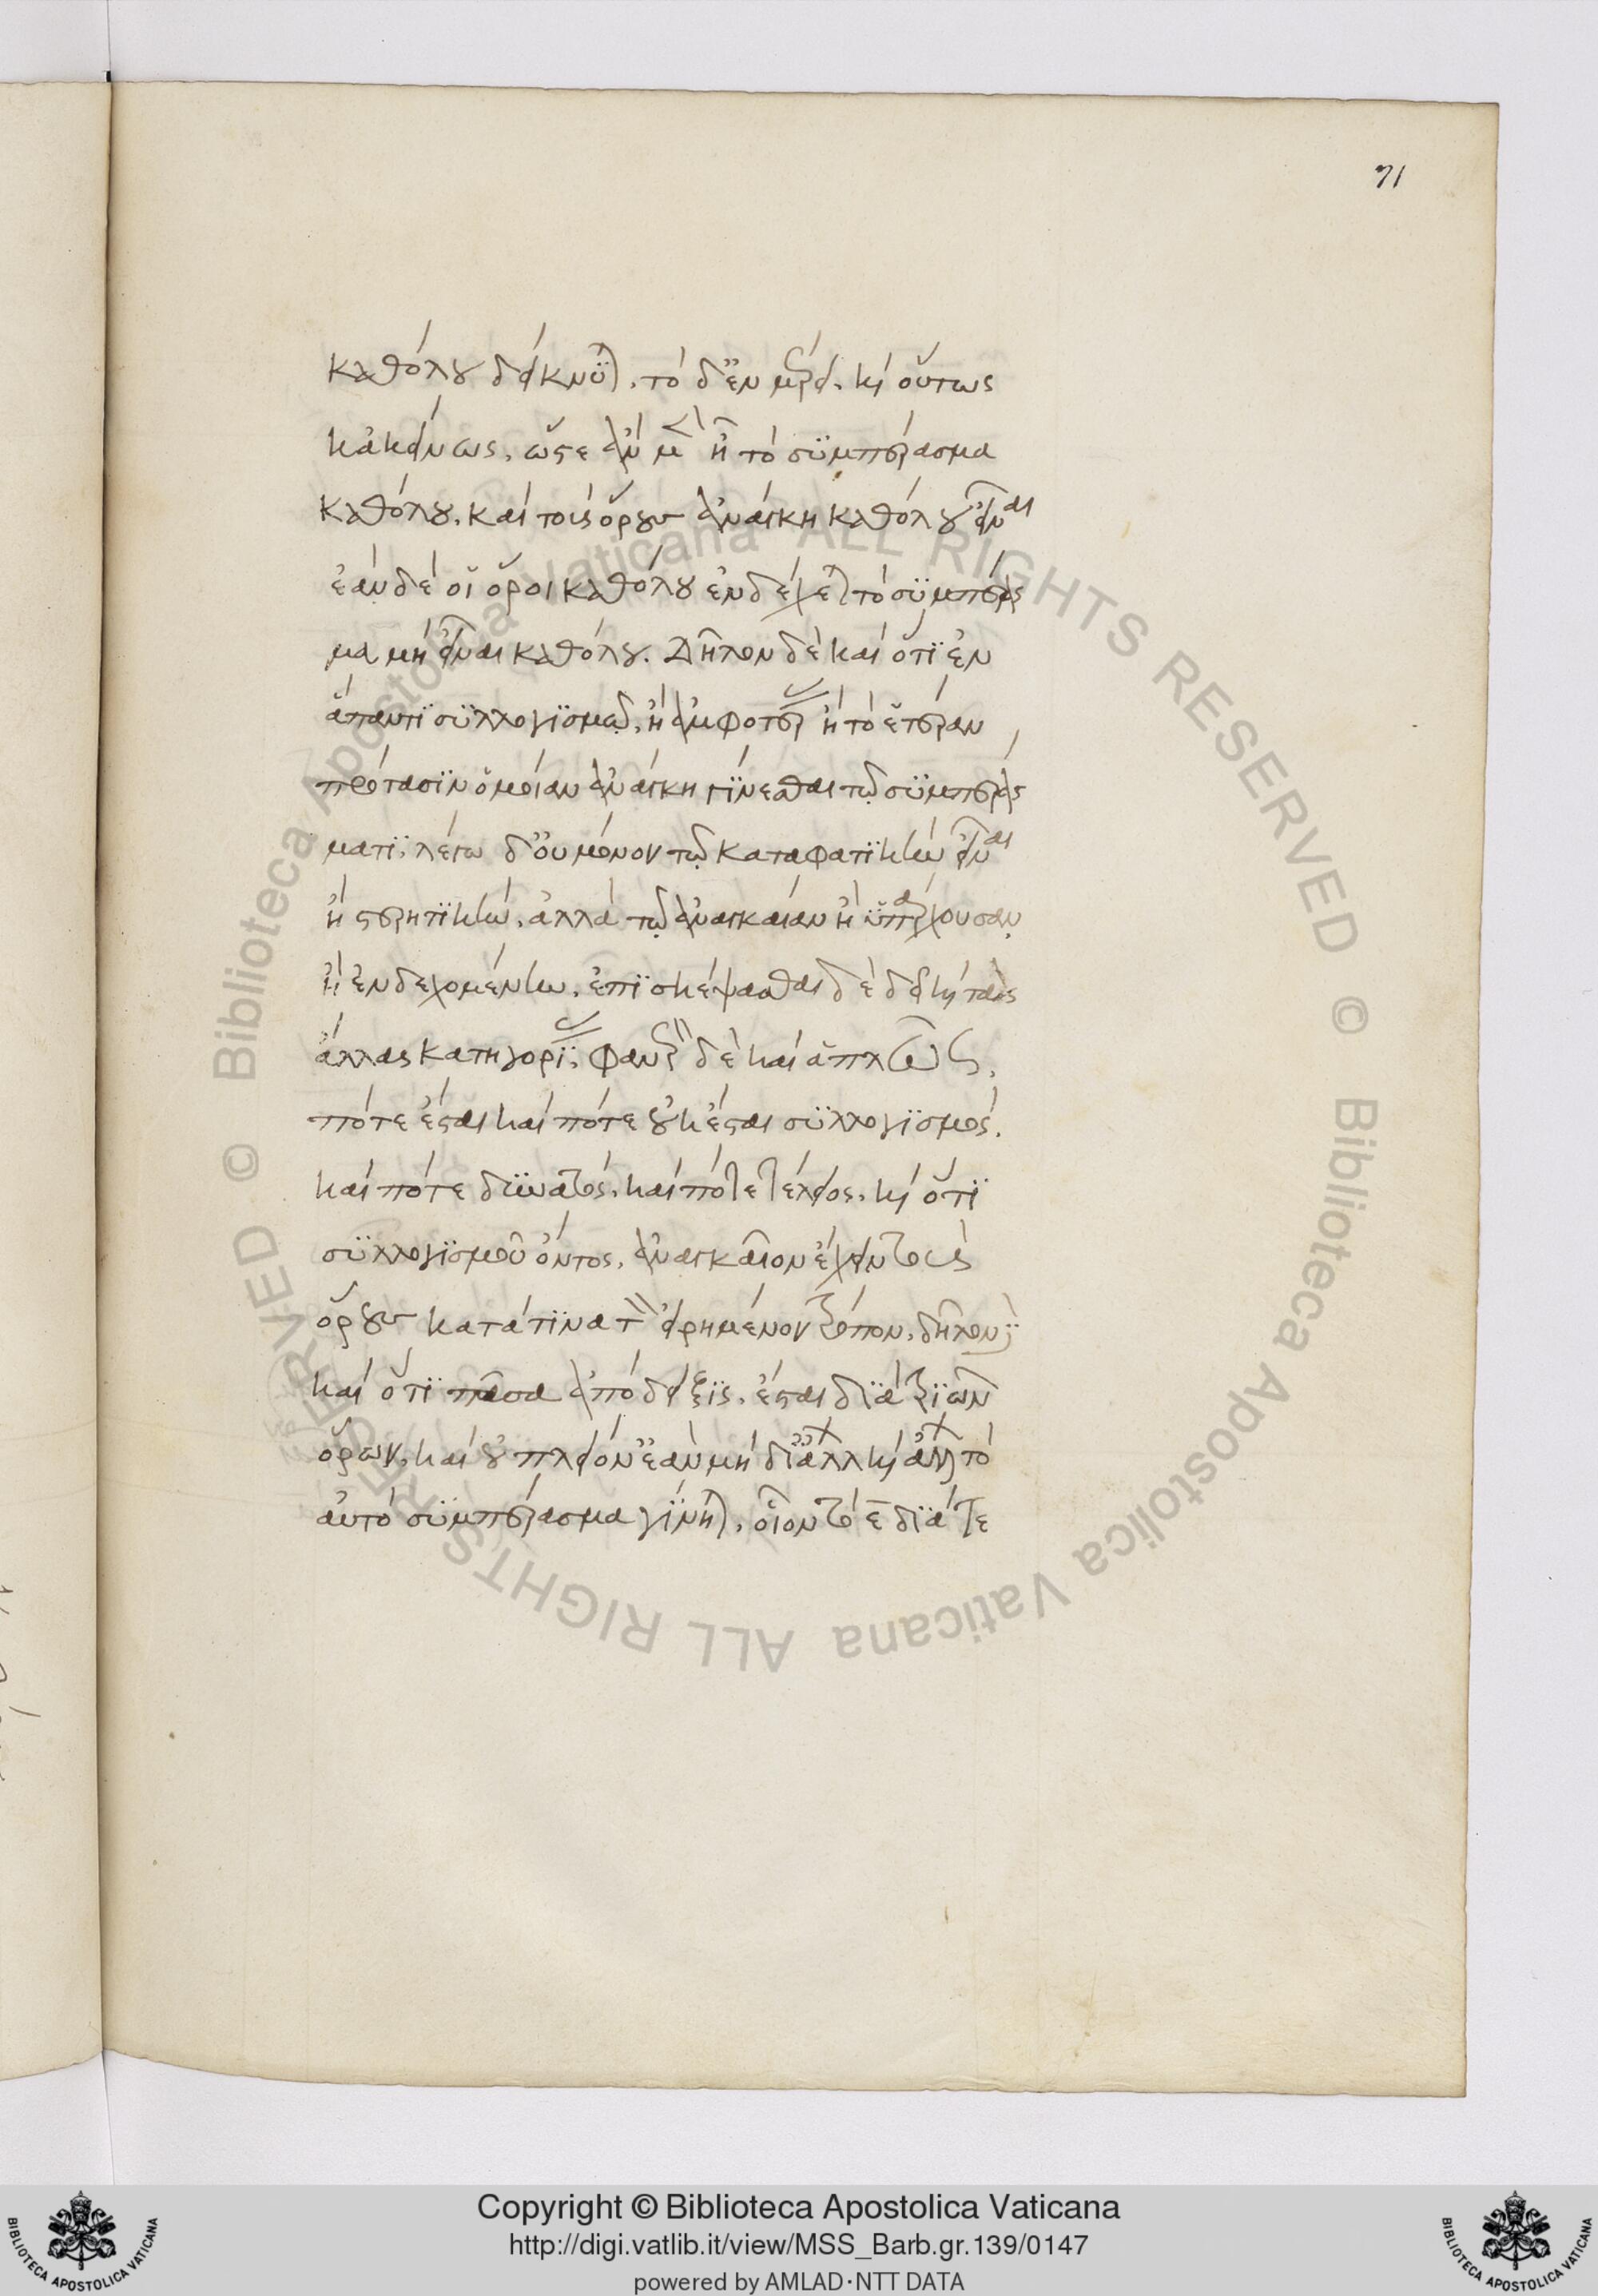 71
καθόλου δείκνυται, τὸ δ' ἐν μέρει, καὶ οὕτως
κἀκείνως, ὥστε ἂν μὲν ᾖ τὸ συμπέρασμα
καθόλου, καὶ τοὺς ὅρους ἀνάγκη καθόλου εἶναι
ἐὰν δὲ οἱ ὅροι καθόλου ἐνδέχεται τὸ συμπέρασ
μα μὴ εἶναι καθόλου. Δῆλον δὲ καὶ ὅτι ἐν
ἅπαντι συλλογισμῷ, ἢ ἀμφοτέρας ἢ τὸ ἑτέραν
πρότασιν ὁμοίαν ἀνάγκη γίνεσθαι τῷ συμπεράσ
ματι, λέγω δ' οὐ μόνον τῷ καταφατικὴν εἶναι
ἢ στερητικήν, ἀλλὰ τῷ ἀναγκαίαν ἢ ὑπάρχουσαν
ἢ ἐνδεχομένην, ἐπισκέψασθαι δὲ δεῖ καὶ τὰς
ἄλλας κατηγορίας, φανερὸν δὲ καὶ ἁπλῶς,
πότε ἔσται καὶ πότε οὐκ ἔσται συλλογισμός.
καὶ πότε δυνατός, καὶ πότε τέλειος, καὶ ὅτι
συλλογισμοῦ ὄντος, ἀναγκαῖον ἔχειν τοὺς
ὅρους κατά τινα τῶν εἰρημένων τρόπον, δῆλον δὲ
καὶ ὅτι πᾶσα ἀπόδειξις, ἔσται διὰ τριῶν
ὅρων, καὶ οὐ πλειόνων ἐὰν μὴ δι' ἄλλων καὶ ἄλλων τὸ
αὐτὸ συμπέρασμα γίνηται, οἷον τὸ ε διά τε
Copyright © Biblioteca Apostolica Vaticana
http://digi.vatlib.it/view/MSS_Barb.gr.139/0147
powered by AMLAD·NTT DATA
© Biblioteca Apostolica Vaticana ALL RIGHTS RESERVED © Biblioteca Apostolica Vaticana ALL RIGHTS RESERVED
BIBLIOTECA APOSTOLICA VATICANA
BIBLIOTECA APOSTOLICA VATICANA